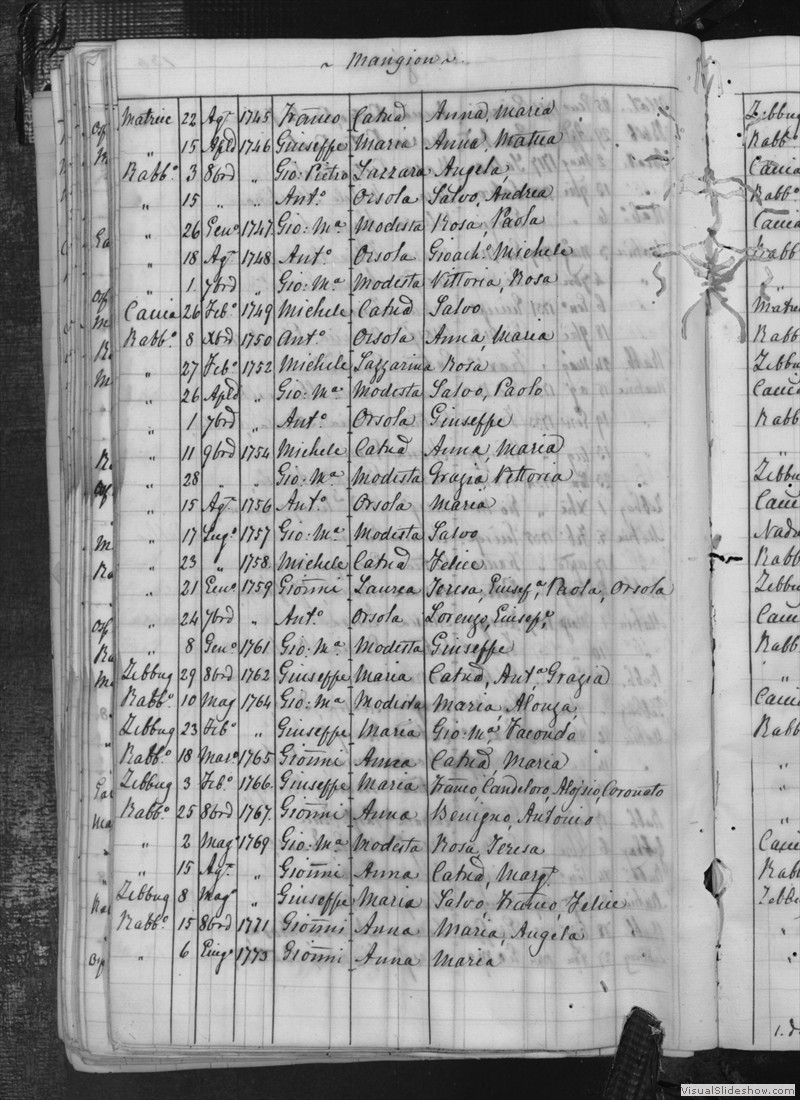 ~ Mangion ~
Matrice 22 Agt 1745 Franco Catnd Anna, Maria
" 15 Apld 1746 Giuseppe Maria Anna, Mattea
Rabbo 3 8brd " Gio: Pietro Lazzara Angela,
" 15 " " Anto Orsola Salvo, Andrea
" 26 Geno 1747 Gio: Ma Modesta Rosa, Paola
" 18 Agt 1748 Anto Orsola Gioacho Michele
" 1 7brd " Gio: Ma Modesta Vittoria, Rosa
Cauia 26 Febo 1749 Michele Catnd Salvo
Rabbo 8 Xbrd 1750 Anto Orsola Anna, Maria
" 27 Febo 1752 Michele Lazzarina Rosa
" 26 Apld " Gio: Ma Modesta Salvo, Paolo
" 1 7brd " Anto Orsola Giuseppe
" 11 9brd 1754 Michele Catnd Anna, Maria
" 28 " " Gio: Ma Modesta Grazia, Vittoria
" 15 Agt 1756 Anto Orsola Maria
" 17 Lugo 1757 Gio: Ma Modesta Salvo
" 23 " 1758 Michele Catnd Felice
" 21 Geno 1759 Gionni Laurea Teresa, Giusefa, Paola, Orsola
" 24 7brd " Anto Orsola Lorenzo, Giusefe
" 8 Geno 1761 Gio: Ma Modesta Giuseppe
Zebbug 29 8brd 1762 Giuseppe Maria Catnd, Anta Grazia
Rabbo 10 Mag 1764 Gio: Ma Modesta Maria, Alonza,
Zebbug 23 Febo " Giuseppe Maria Gio: Ma Facondo
Rabbo 18 Maro 1765 Gionni Anna Catnd, Maria
Zebbug 3 Febo 1766 Giuseppe Maria Franco, Candeloro, Aloysio, Coronato
Rabbo 25 8brd 1767 Gionni Anna Benigno, Antonio
" 2 Mago 1769 Gio: Ma Modesta Rosa, Teresa
" 15 Agt " Gionni Anna Catnd, Margt
Zebbug 8 Mago " Giuseppe Maria Salvo, Franco, Felice
Rabbo 15 8brd 1771 Gionni Anna Maria, Angela
" 6 Giugo 1773 Gionni Anna Maria
Zibbug
Rabbo
Rabbo
Matric
Rabb
Zibbu
Rabb
Nadu
Rabb
Zibbu
Rabb
VisualSlideshow.com